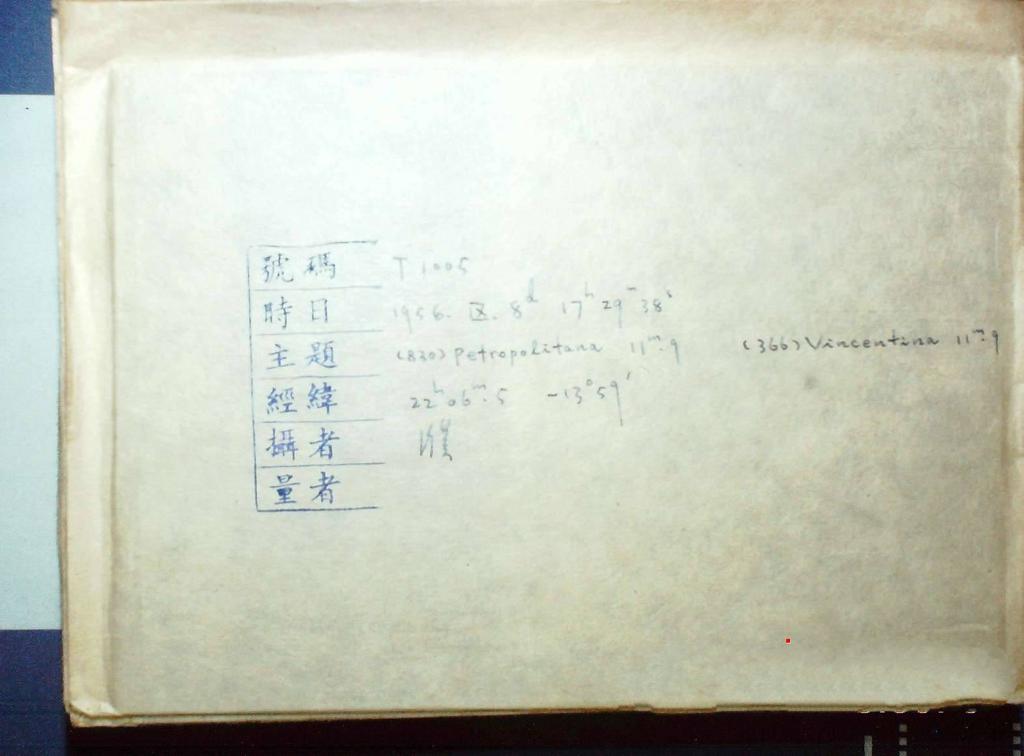 號碼 T 1005
時日 1956. IX. 8ᵈ 17ʰ 29ᵐ 38ˢ
主題 (830) Petropolitana 11ᵐ.9 (366) Vincentina 11ᵐ.9
經緯 22ʰ06ᵐ.5 -13°59′
攝者
量者